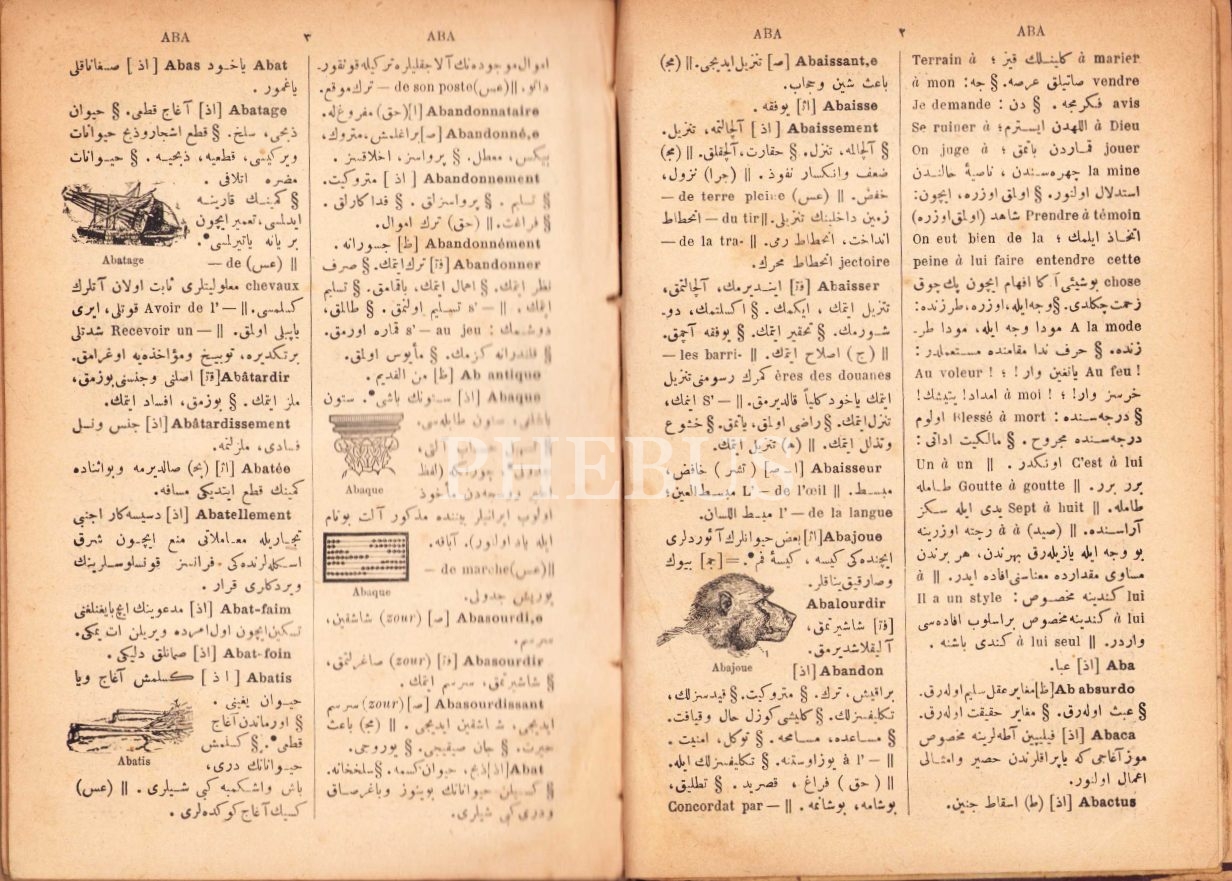 ABA
٢
ABA
Terrain à ؛ كلينــلك قيز à marier
à mon صاتيلق عرصه. § جه: vendre
Je demande : دن § .فكرمجه avis
Se ruiner à ؛ اللهدن ايسترم à Dieu
On juge à ؛ قماردن باتمق jouer
چهره‌سندن، ناصيهٔ حالندن la mine
استدلال اولنور. § اولمق اوزره، ايچون:
Prendre à témoin شاهد (اولمق اوزره)
On eut bien de la ؛ اتخاذ ايلمك
peine à lui faire entendre cette
chose بوشيئى آكا افهام ايچون پك چوق
زحمت چكلدى. § وجه‌ايله، اوزره، طرزنده:
A la mode مودا وجه ايله، مودا طر-
زنده. § حرف ندا مقامنده مستعملدر:
Au voleur! ؛ !يانغين وار Au feu!
خرسز وار! ؛ à moi! امداد! يتيشك!
§ درجه‌سنده: Blessé à mort اولوم
درجه‌سنده مجروح. § مالكيت اداتى:
Un à un || .اونكدر C'est à lui
برر برر. || Goutte à goutte طامله
طامله. || Sept à huit يدى ايله سكز
آراسنده. || (صيد) à à رجته اوزرينه
بو وجه ايله يازيله‌رق بهرندن، هر برندن
مساوى مقدارده معناسنى افاده ايدر. || à
Il a un style : كندينه مخصوص lui
à lui كندينه مخصوص براسلوب افاده‌سى
واردر. || à lui seul كندى باشنه.
Aba [اذ] عبا.
Ab absurdo [ظ] مغاير عقل سليم اوله‌رق.
§ عبث اوله‌رق. § مغاير حقيقت اوله‌رق.
Abaca [اذ] فيليپين آطه‌لرينه مخصوص
موز آغاجى كه ياپراقلرندن حصير وامثالى
اعمال اولنور.
Abactus [اذ] (ط) اسقاط جنين.
Abaissant,e [ص] تنزيل ايديجى. || (مج)
باعث شين وحجاب.
Abaisse [اث] يوفقه.
Abaissement [اذ] آلچالتمه، تنزيل.
§ آلچالمه، تنزل. § حقارت، آلچقلق. || (مج)
ضعف وانكسار نفوذ. || (جرا) نزول،
خفض. || (عس) de terre pleine —
زمين داخلينك تنزيلى. || du tir — انحطاط
انداخت، انحطاط رمى. || de la tra- —
jectoire انحطاط محرك.
Abaisser [فة] اينديرمك، آلچالتمق،
تنزيل ايتمك، ايكمك. § اكسلتمك، دو-
شورمك. § تحقير ايتمك. § يوفقه آچمق.
|| (ج) اصلاح ايتمك. || les barri- —
ères des douanes كمرك رسومنى تنزيل
ايتمك ياخود كلياً قالديرمق. || S' — ايتمك،
تنزل ايتمك. § راضى اولمق، ياتمق. § خشوع
وتذلل ايتمك. || (ه) تنزيل ايتمك.
Abaisseur [ا-ص] (تشر) خافض،
مبسط. || L' — de l'œil مبسط العين؛
l' — de la langue مبسط اللسان.
Abajoue [اث] بعض حيوانلرك آئوردلرى
ايچنده‌كى كيسه، كيسهٔ فم. = [جم] بيوك
وصارقيق يناقلر.
Abajoue
Abalourdir
[فة] شاشيرتمق،
آليقلاشديرمق.
Abandon [اذ]
براقيش، ترك. § متروكيت. § قيدسزلك،
تكليفسزلك. § كايشى كوزل حال وقيافت.
§ مساعده، مسامحه. § توكل، امنيت.
|| à l' — يوزاوستنه. § تكليفسزلك ايله.
|| (حق) فراغ، قصريد. § تطليق،
بوشامه، بوشانمه. || — Concordat par
ABA
٣
ABA
اموال موجوده‌نك آلاجقليلره تركيله قونقور-
داتو. || (عس) de son poste — ترك موقع.
Abandonnataire [ا] (حق) مفروغ‌له.
Abandonné,e [ص] براغلمش، متروك،
بيكس، معطل. § پرواسز، اخلاقسز.
Abandonnement [اذ] متروكيت.
§ تسليم. § پرواسزلق. § فداكارلق.
§ فراغت. || (حق) ترك اموال.
Abandonnément [ظ] جسورانه.
Abandonner [فة] ترك ايتمك. § صرف
نظر ايتمك. § اهمال ايتمك، باقمامق. § تسليم
ايتمك. || s' — تسليم اولنمق. § طالمق،
دوشمك: s' — au jeu قماره اورمق.
§ قلندرانه كزمك. § مأيوس اولمق.
Ab antiquo [ظ] من القديم.
Abaque [اذ] ستونك باشى. ستون
Abaque
اولوب ايرانيلر بيننده مذكور آلت بونام
ايله ياد اولنور).
|| (عس) de marche —
يوريش جدولى.
Abaque
Abasourdi,e [ص] (zour) شاشقين،
سرسم.
Abasourdir [فة] (zour) صاغرلتمق،
§ شاشيرتمق، سرسم ايتمك.
Abasourdissant [ص] (zour) سرسم
ايديجى، شاشقين ايديجى. || (مج) باعث
حيرت. § جان صيقيجى. § يوروجى.
Abat [اذ] ذبح، حيوان كسمه. § سلخخانه.
§ كسيلن حيواناتك بوينوز وباغرصاق
ودرى كبى شيلرى.
Abat ياخود Abas [اذ] صغاناقلى
ياغمور.
Abatage [اذ] آغاج قطعى. § حيوان
ذبحى، سلخ. § قطع اشجار وذبح حيوانات
ويركيسى، قطعيه، ذبحيه. § حيوانات
مضره اتلافى.
§ كمينك قارينه
ايدلمسى، تعمير ايچون
بر يانه ياتيرلمسى.
Abatage
|| (عس) de —
chevaux معلوليتلرى ثابت اولان آتلرك
كسلمسى. || Avoir de l' — قوتلى، ايرى
ياپيلى اولمق. || Recevoir un — شدتلى
برتكديره، توبيخ ومؤاخذه‌يه اوغرامق.
Abâtardir [فة] اصلنى وجنسنى بوزمق،
ملز ايتمك. § بوزمق، افساد ايتمك.
Abâtardissement [اذ] جنس ونسل
فسادى، ملزلتمه.
Abatée [اث] (بح) صالديرمه وبوائناده
كمينك قطع ايتديكى مسافه.
Abatellement [اذ] دسيسه‌كار اجنبى
تجاريله معاملاتى منع ايچون شرق
اسكله‌لرنده‌كى فرانسز قونسولوسلرينك
ويردكارى قرار.
Abat-faim [اذ] مدعوينك ايچ بايغنلغنى
تسكين ايچون اول امرده ويريلن ات يمكى.
Abat-foin [اذ] صمانلق دليكى.
Abatis [اذ] كسلمش آغاج ويا
حيوان يغينى.
§ اورماندن آغاج
قطعى. § كسلمش
Abatis
حيواناتك درى،
باش واشكمبه كبى شيلرى. || (عس)
كسيك آغاج كوكده‌لرى.
PHEBUS